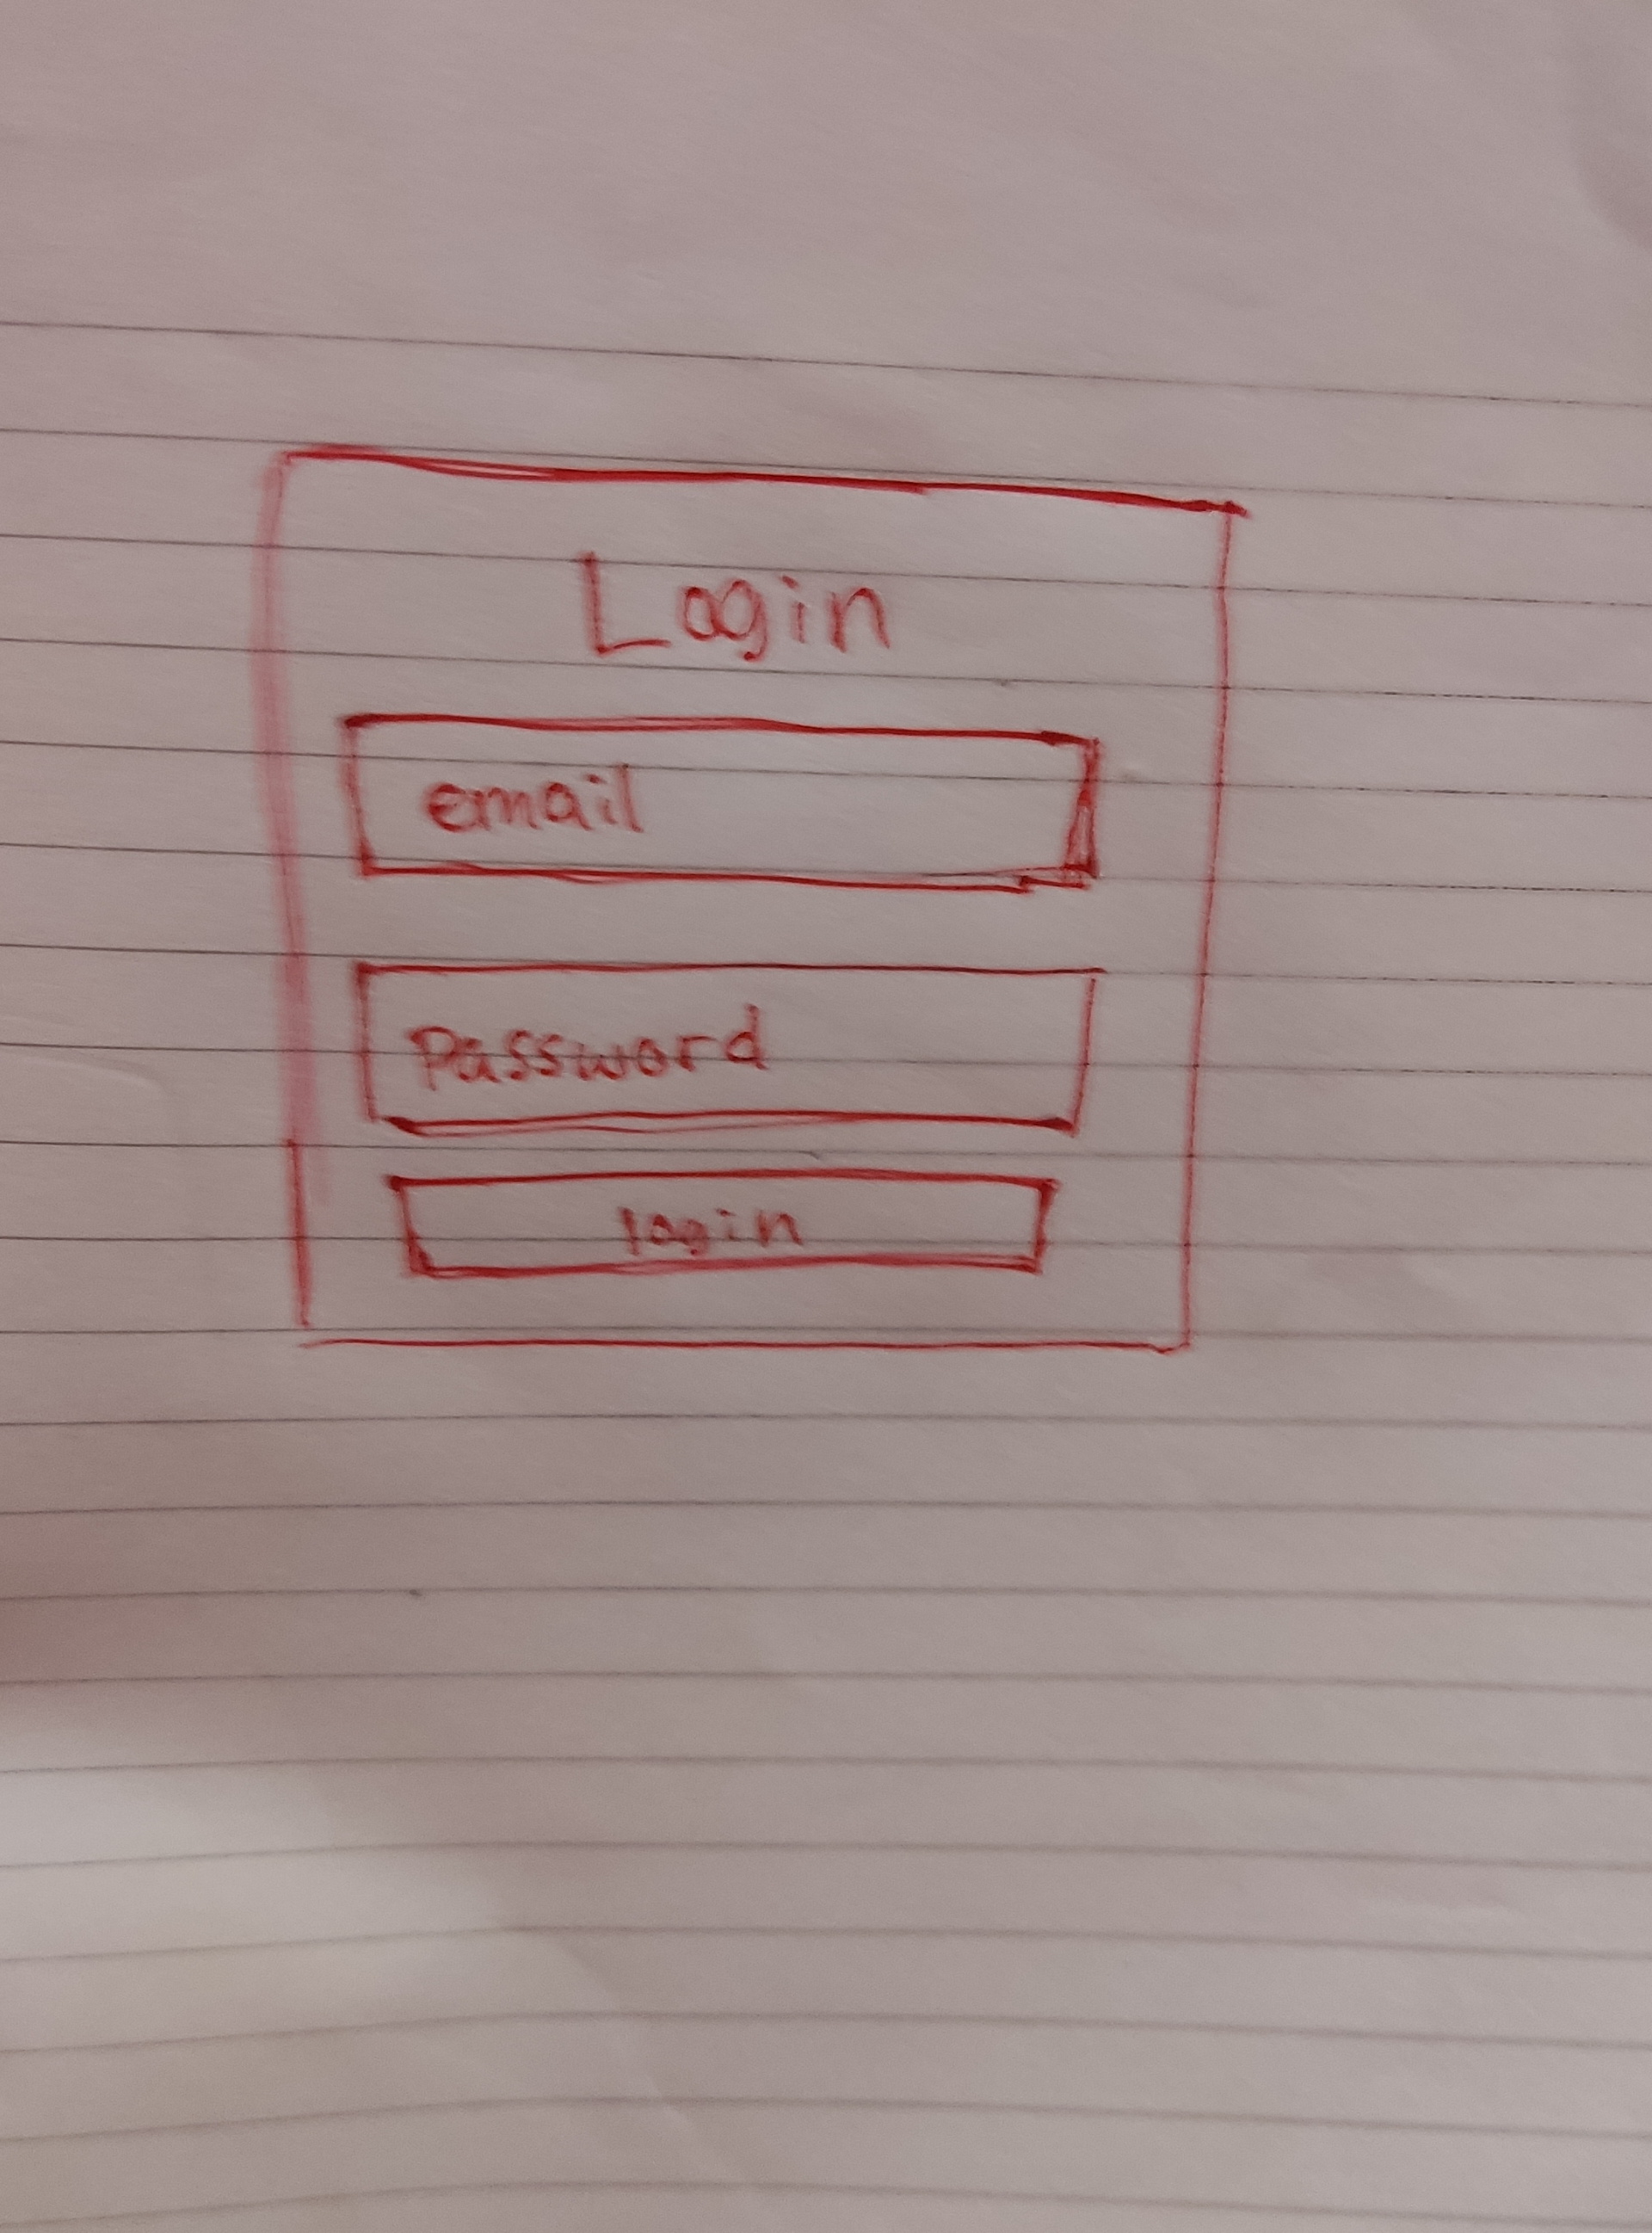 Login
email
Password
login